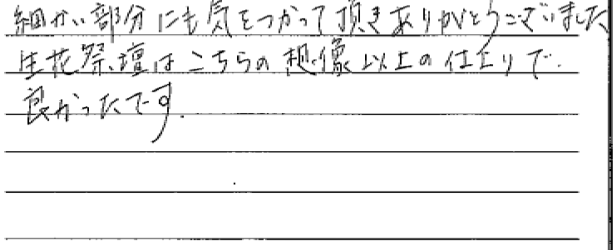 細かい部分にも気をつかって頂きありがとうございました
生花祭壇はこちらの想像以上の仕上りで
良かったです.